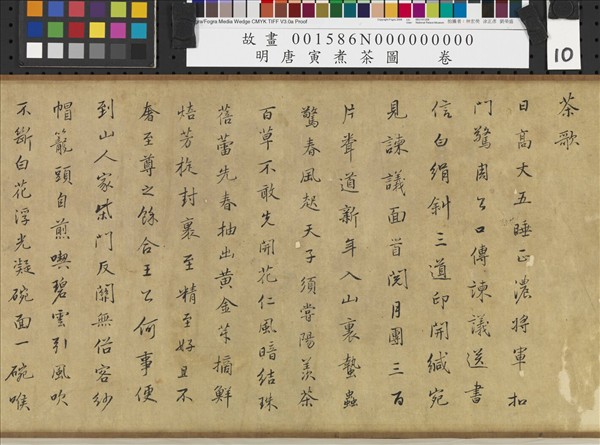 gra/Fogra Media Wedge CMYK TIFF V3.0a Proof
故畫 001586N000000000
明唐寅煮茶圖 卷
10
茶歌
日高丈五睡正濃將軍扣
門驚周公口傳諫議送書
信白絹斜三道印開緘宛
見諫議面首閱月團三百
片聞道新年入山裏蟄蟲
驚春風起天子須嘗陽羨茶
百草不敢先開花仁風暗結珠
蓓蕾先春抽出黃金芽摘鮮
焙芳旋封裹至精至好且不
奢至尊之餘合王公何事便
到山人家柴門反關無俗客紗
帽籠頭自煎喫碧雲引風吹
不斷白花浮光凝碗面一碗喉